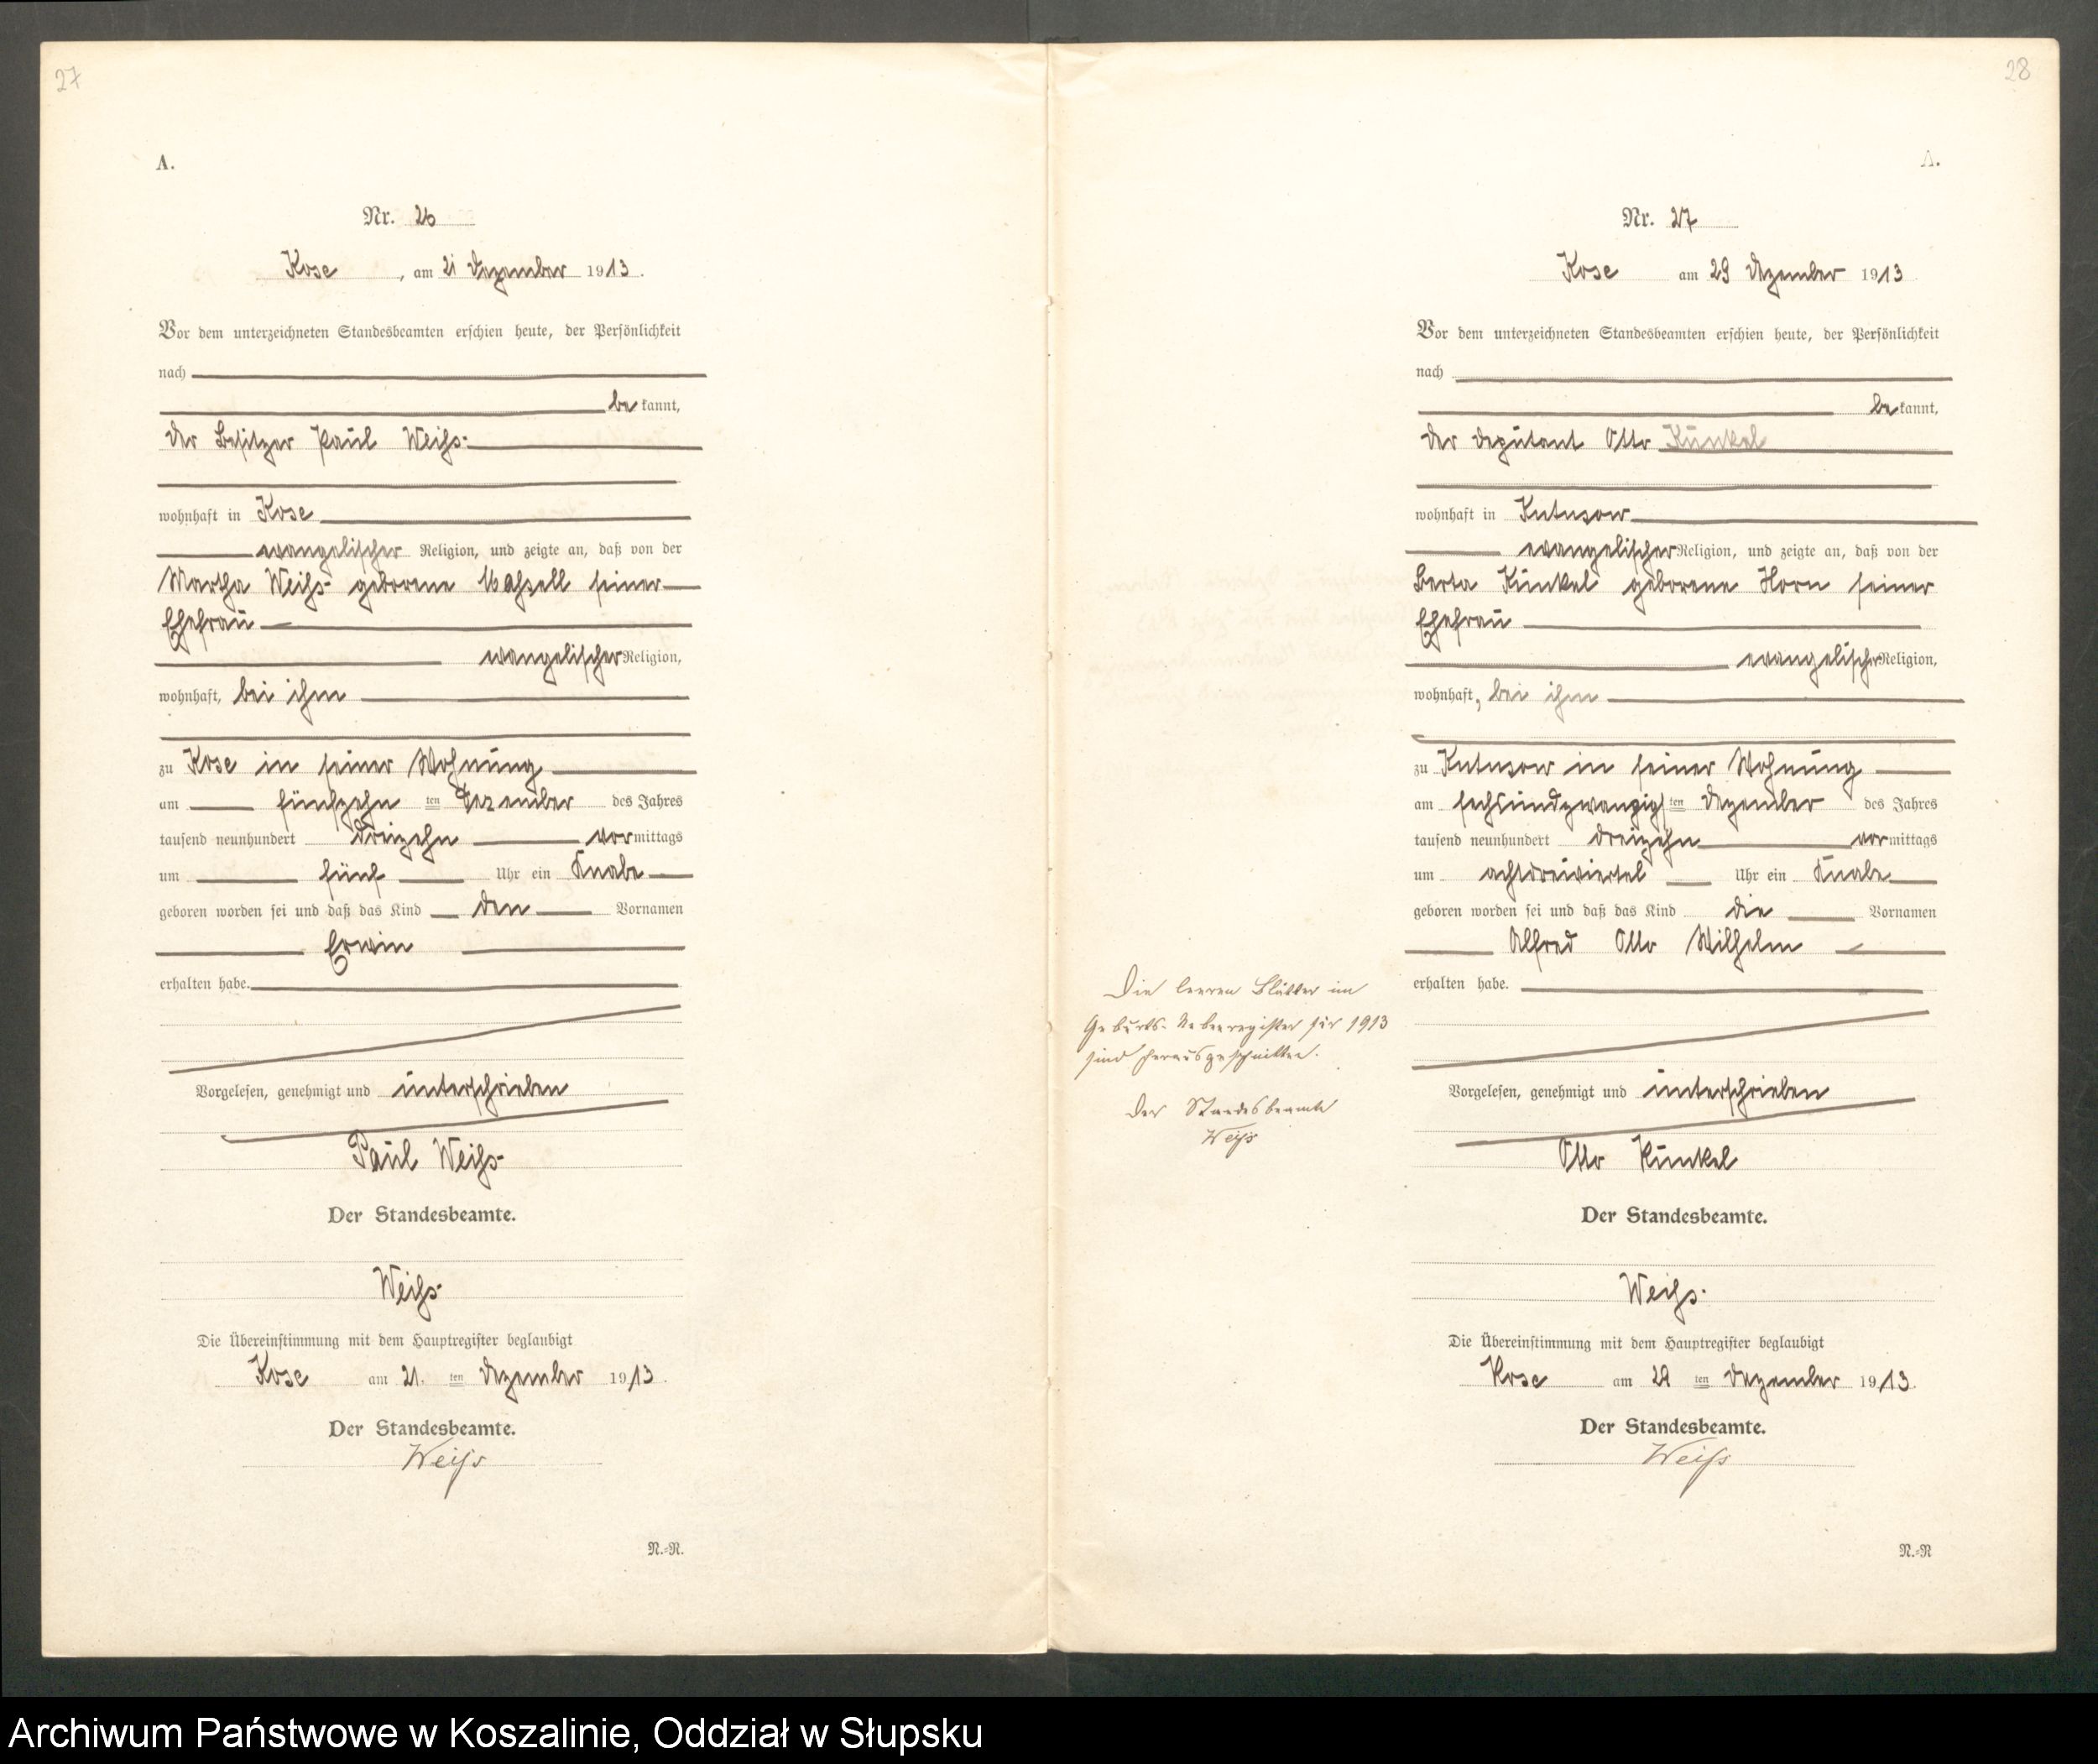 27
A.
Nr. 26
Kose, am 21 Dezember 1913.
Vor dem unterzeichneten Standesbeamten erschien heute, der Persönlichkeit
nach
be kannt,
der Besitzer Paul Weiß
wohnhaft in Kose
evangelischer Religion, und zeigte an, daß von der
Martha Weiß geborene seiner
Ehefrau
evangelischer Religion,
wohnhaft, bei ihm
zu Kose in seiner Wohnung
am fünfzehn ten Dezember des Jahres
tausend neunhundert dreizehn vormittags
um fünf Uhr ein Knabe
geboren worden sei und daß das Kind den Vornamen
Erwin
erhalten habe.
Vorgelesen, genehmigt und unterschrieben
Paul Weiß
Der Standesbeamte.
Weiß
Die Übereinstimmung mit dem Hauptregister beglaubigt
Kose am 21. ten Dezember 1913.
Der Standesbeamte.
Weiß
N.=R.
28
A.
Nr. 27
Kose am 29 Dezember 1913
Vor dem unterzeichneten Standesbeamten erschien heute, der Persönlichkeit
nach
be kannt,
der Deputant Otto Kunkel
wohnhaft in Kutusow
evangelischer Religion, und zeigte an, daß von der
Berta Kunkel geborene Horn seiner
Ehefrau
evangelischer Religion,
wohnhaft, bei ihm
zu Kutusow in seiner Wohnung
am sechsundzwanzigsten Dezember des Jahres
tausend neunhundert dreizehn vormittags
um achtdreiviertel Uhr ein Knabe
geboren worden sei und daß das Kind die Vornamen
Alfred Otto Wilhelm
erhalten habe.
Vorgelesen, genehmigt und unterschrieben
Otto Kunkel
Der Standesbeamte.
Weiß.
Die Übereinstimmung mit dem Hauptregister beglaubigt
Kose am 29 ten Dezember 1913.
Der Standesbeamte.
Weiß
N.=R
Die leeren Blätter im
Geburts-Nebenregister für 1913
sind herausgeschnitten.
Der Standesbeamte
Weiß
Archiwum Państwowe w Koszalinie, Oddział w Słupsku